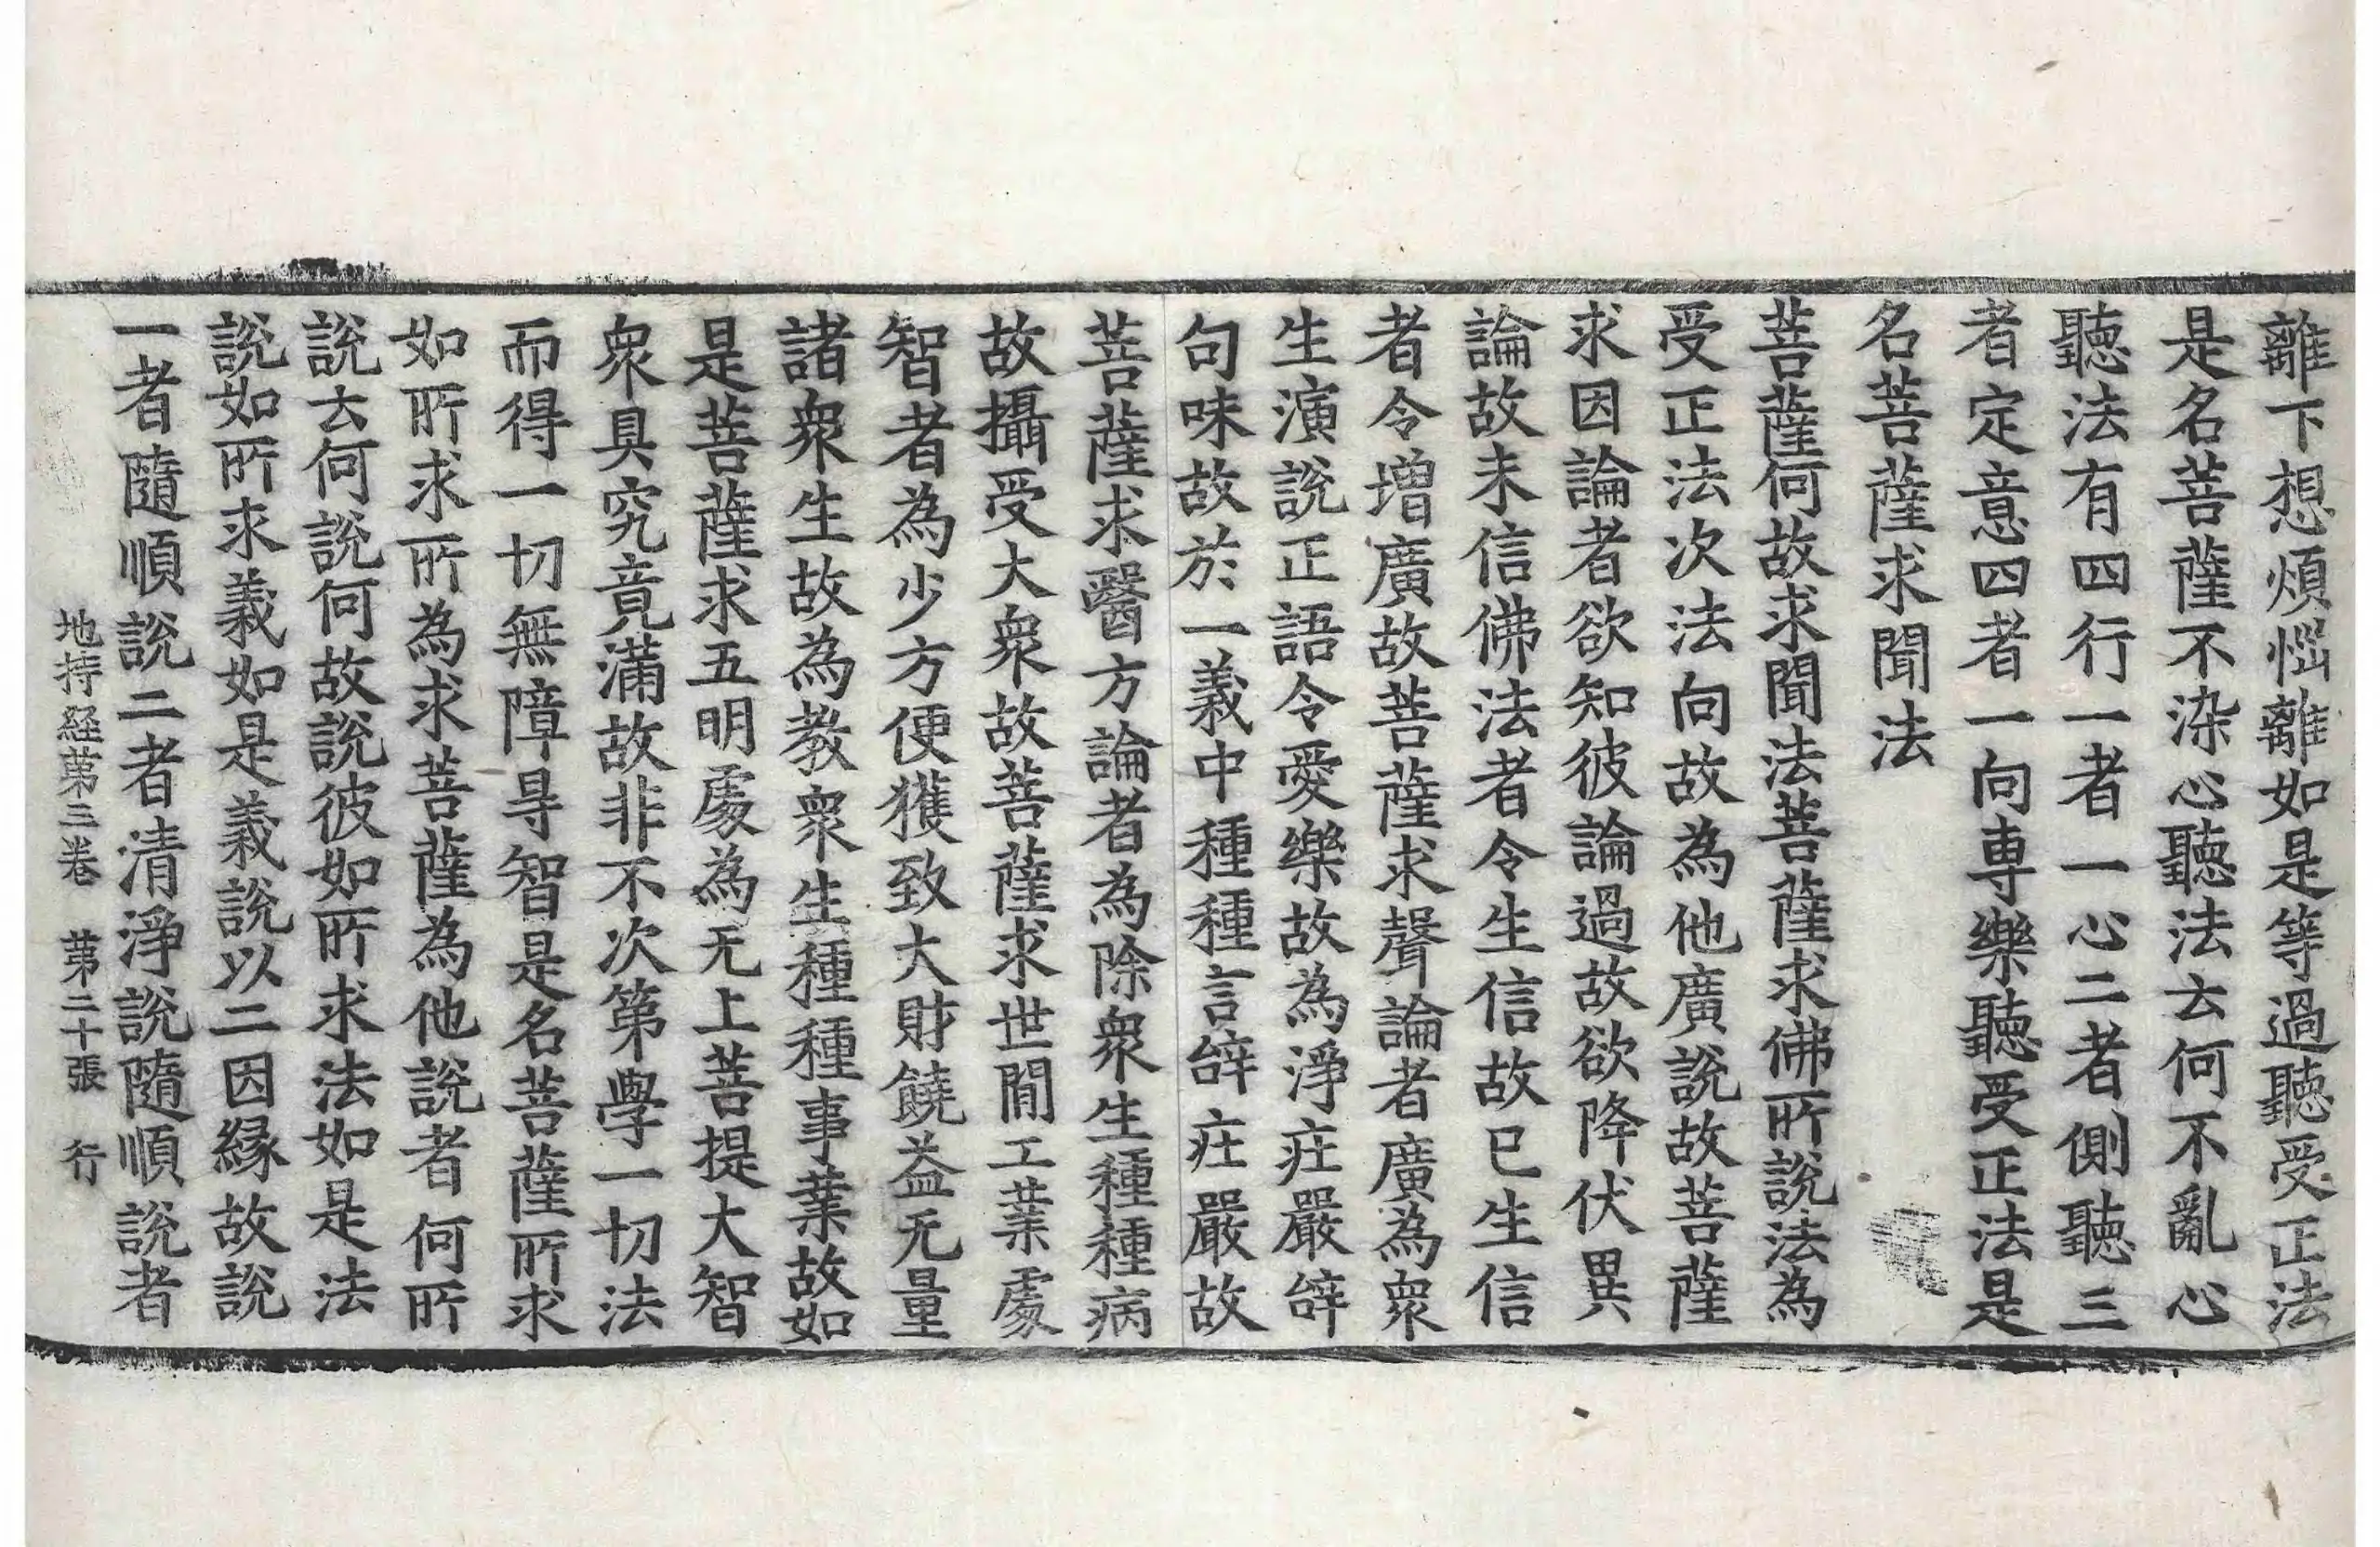 離下想煩惱離如是等過聽受正法
是名菩薩不染心聽法云何不亂心
聽法有四行一者一心二者側聽三
者定意四者一向専樂聽受正法是
名菩薩求聞法
菩薩何故求聞法菩薩求佛所說法為
受正法次法向故為他廣說故菩薩
求因論者欲知彼論過故欲降伏異
論故未信佛法者令生信故已生信
者令增廣故菩薩求聲論者廣為衆
生演說正語令愛樂故為淨庄嚴辝
句味故於一義中種種言辝庄嚴故
菩薩求醫方論者為除衆生種種病
故攝受大衆故菩薩求世間工業處
智者為少方便獲致大財饒益无量
諸衆生故為教衆生種種事業故如
是菩薩求五明處為无上菩提大智
衆具究竟滿故非不次第學一切法
而得一切無障㝵智是名菩薩所求
如所求所為求菩薩為他說者何所
說云何說何故說彼如所求法如是法
說如所求義如是義說以二因縁故說
一者隨順說二者清淨說隨順說者
地持経苐三卷　苐二十張　行